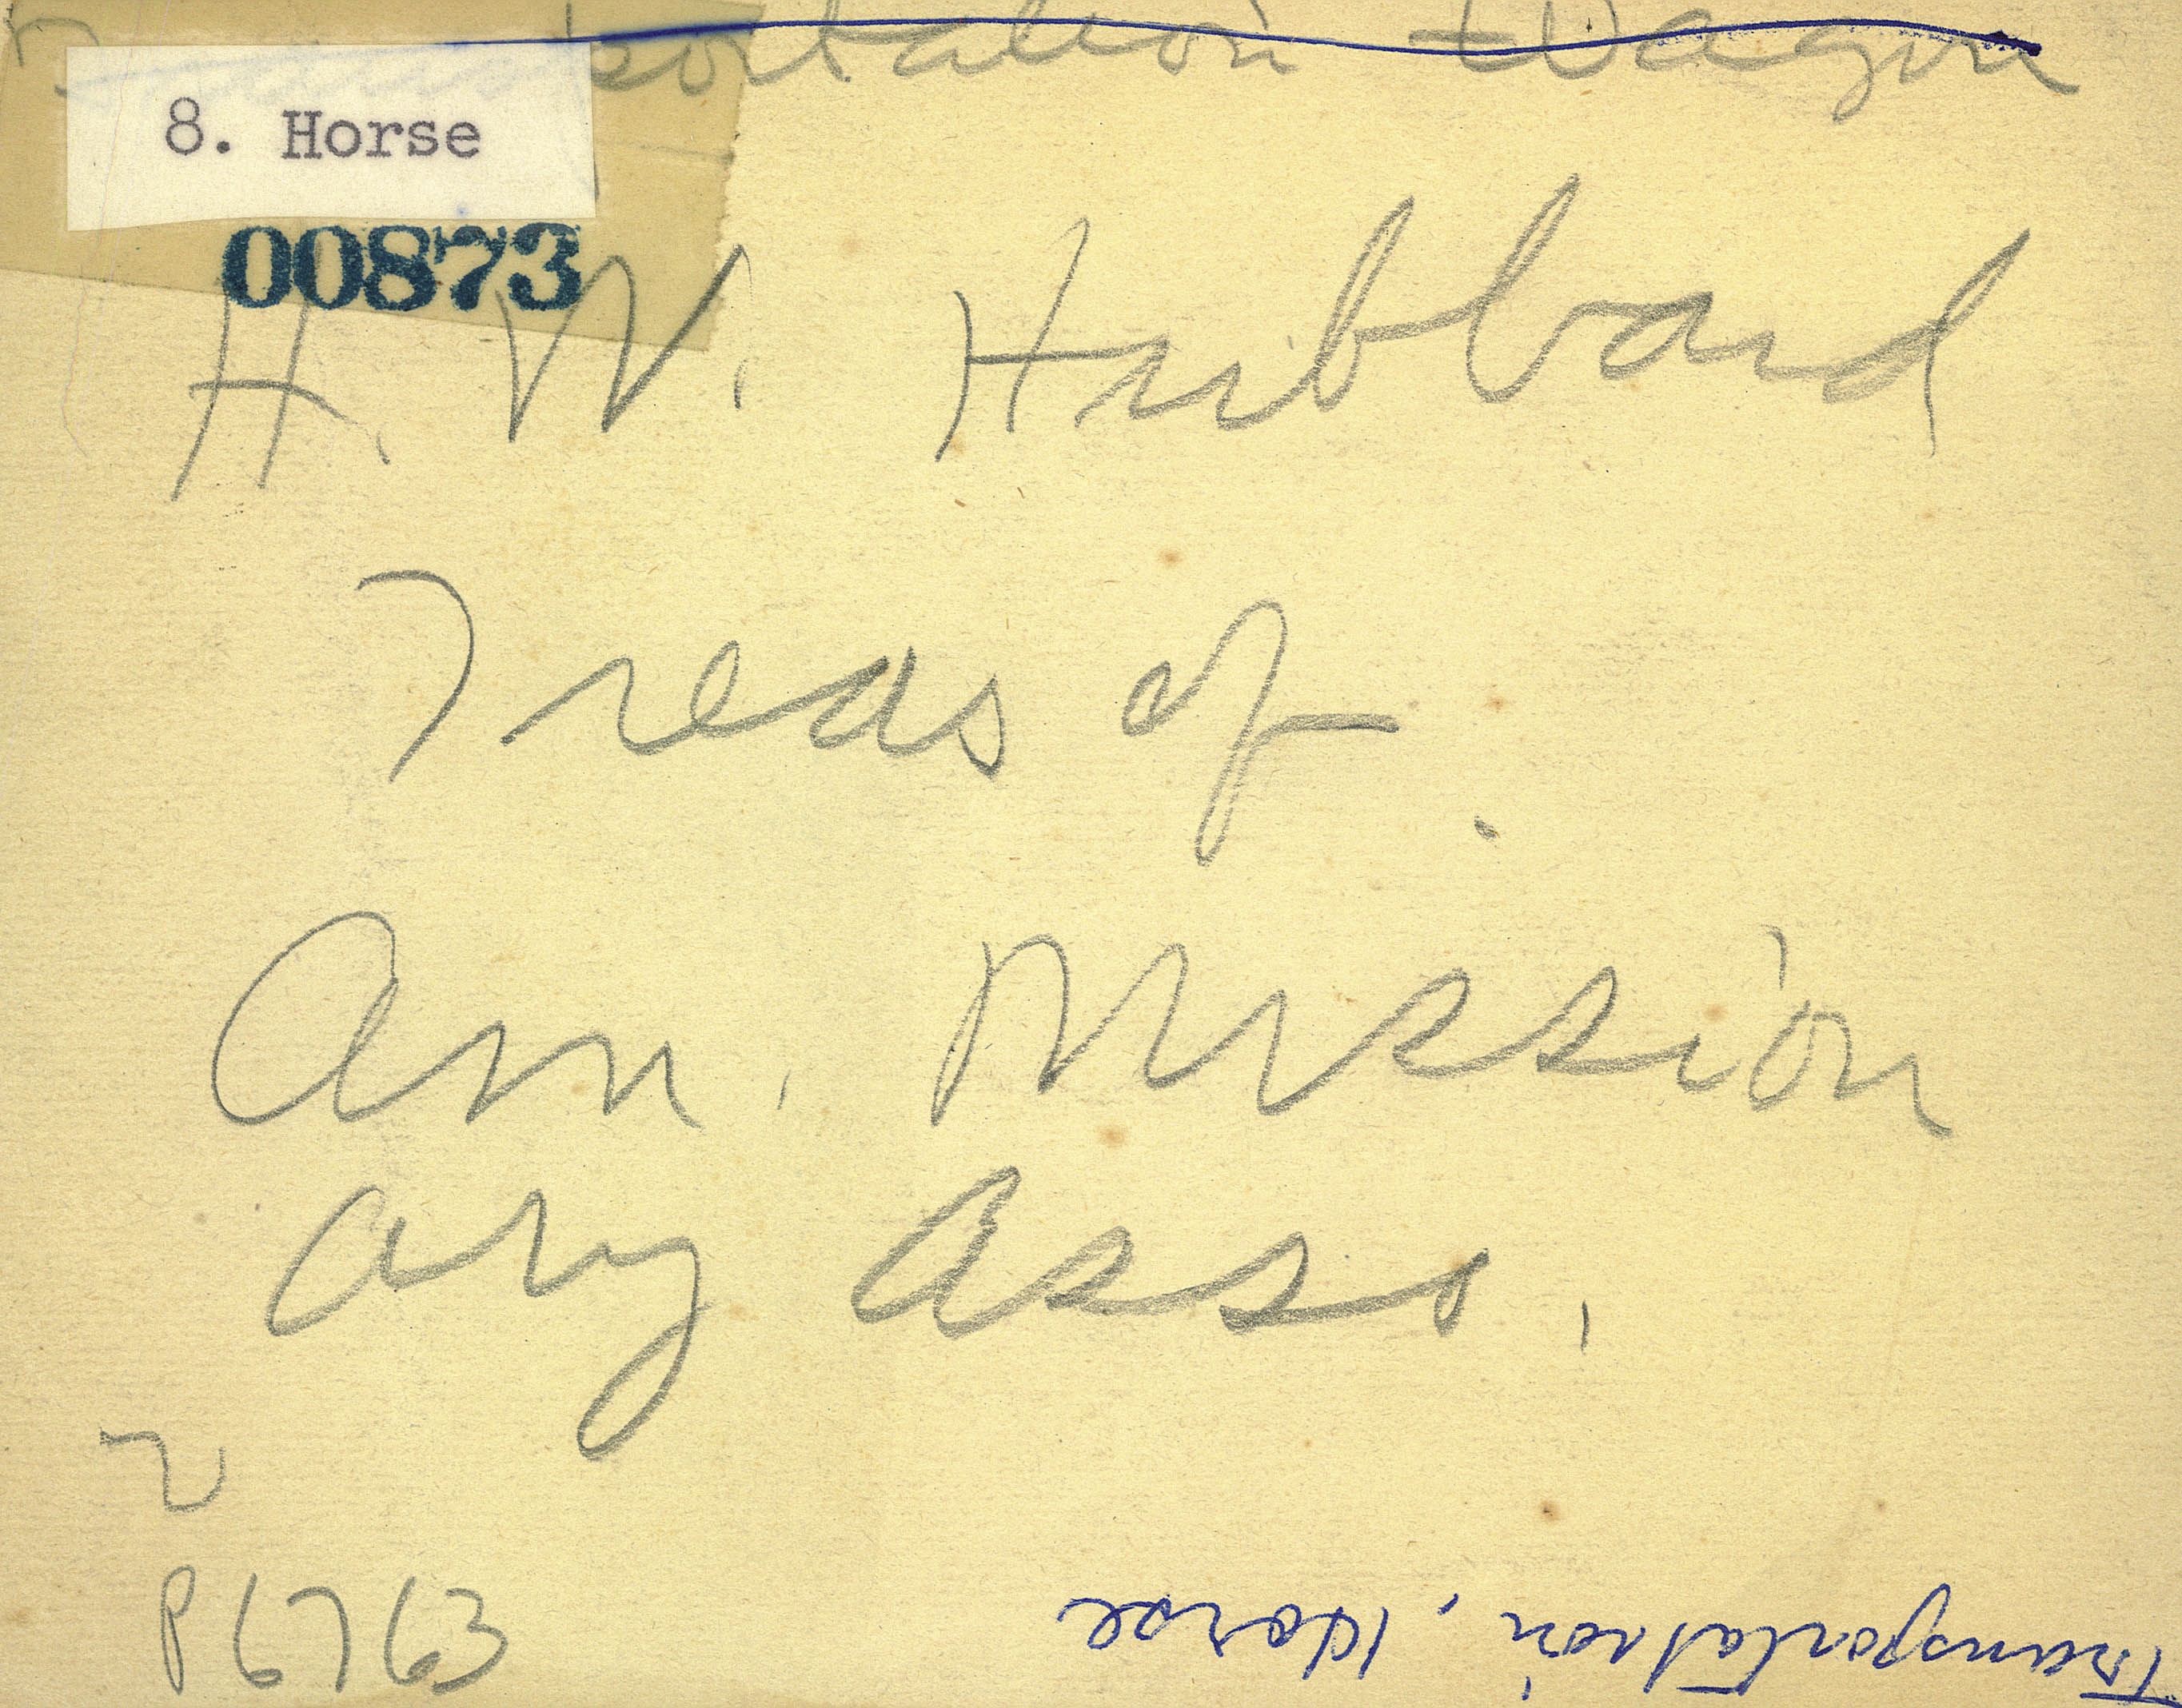 Transportation Wagon
8. Horse
00873
H. W. Hubbard
Treas of
Am. Mission
ary Asso.
P6763
Transportation, Horse